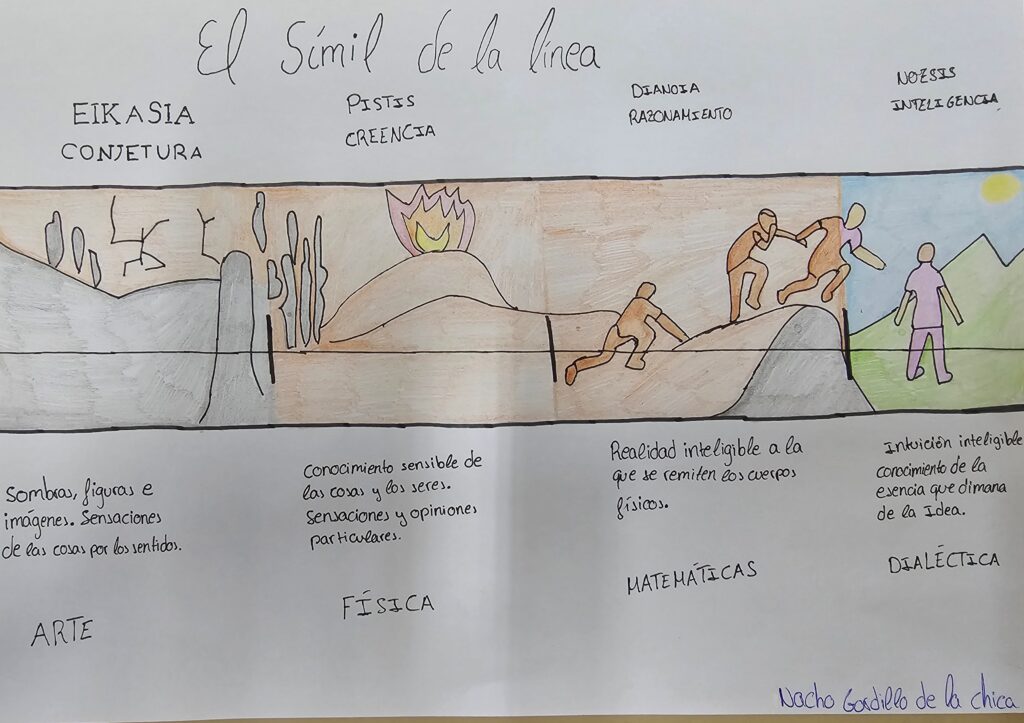 El Símil de la línea
EIKASIA
CONJETURA
PISTIS
CREENCIA
DIANOIA
RAZONAMIENTO
NOESIS
INTELIGENCIA
Sombras, figuras e
imágenes. Sensaciones
de las cosas por los sentidos.
ARTE
Conocimiento sensible de
las cosas y los seres.
Sensaciones y opiniones
particulares.
FÍSICA
Realidad inteligible a la
que se remiten los cuerpos
físicos.
MATEMÁTICAS
Intuición inteligible
conocimiento de la
esencia que dimana
de la Idea.
DIALÉCTICA
Nacho Gordillo de la chica